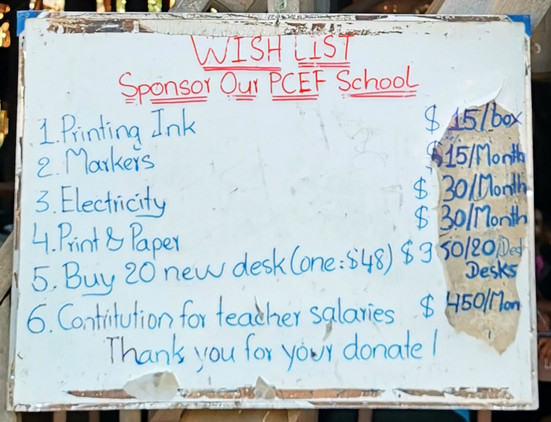 WISH LIST
Sponsor Our PCEF School
1. Printing Ink $ 15/box
2. Markers $15/Month
3. Electricity $ 30/Month
4. Print & Paper $ 30/Month
5. Buy 20 new desk (one: $48) $ 950/20
Desks
6. Contritution for teacher salaries $ 450/Mon
Thank you for your donate!